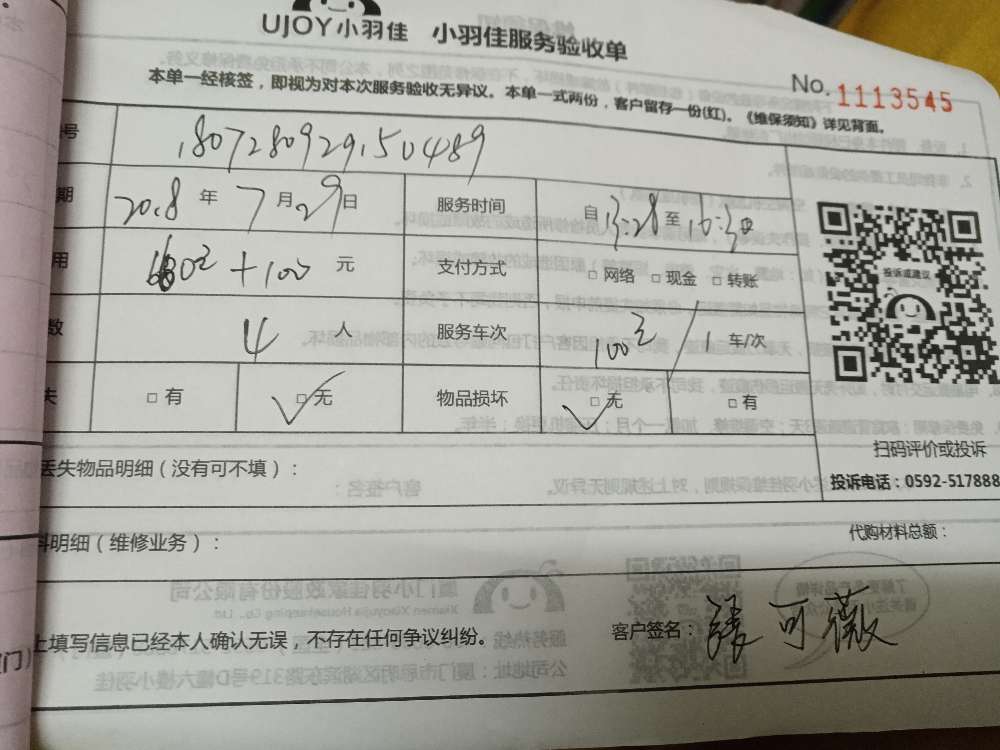 UJOY小羽佳 小羽佳服务验收单
No. 1113545
本单一经核签，即视为对本次服务验收无异议。本单一式两份，客户留存一份(红)。《维保须知》详见背面。
号 180728092915 0489
期 2018 年 7 月 29 日 服务时间 自 13:28 至 16:30
用 +100 元 支付方式 □ 网络 □ 现金 □ 转账
数 4 人 服务车次 100元/1 车/次
失 □ 有 □ 无 物品损坏 □ 无 □ 有
投诉或建议
扫码评价或投诉
丢失物品明细（没有可不填）：
投诉电话：0592-517888
料明细（维修业务）： 代购材料总额：
上填写信息已经本人确认无误，不存在任何争议纠纷。 客户签名：張可薇
门）